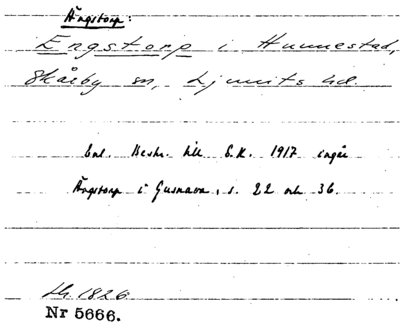 Ängstorp:
Engstorp i Hunnestad,
Skårby sn, Ljunits hd.
Enl. Beskr. till E.K. 1917 ingår
Ängstorp i Gusnava, s. 22 och 36.
1826
Nr 5666.